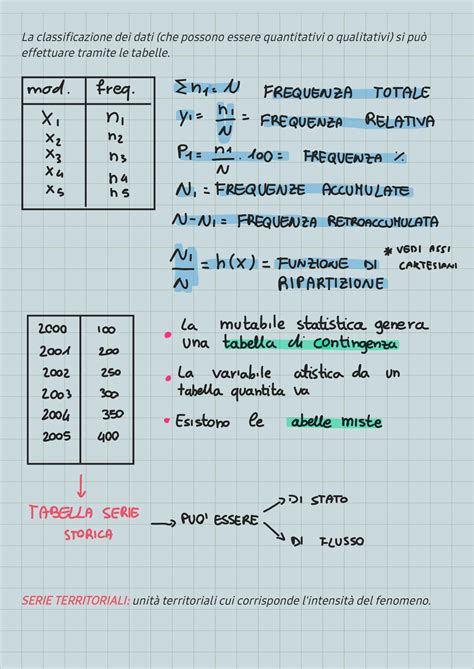 La classificazione dei dati (che possono essere quantitativi o qualitativi) si può
effettuare tramite le tabelle.
mod. freq.
X₁ n₁
x₂ n₂
x₃ n₃
x₄ n₄
x₅ n₅
Σn₁ = N FREQUENZA TOTALE
y₁ = n₁/N = FREQUENZA RELATIVA
P₁ = n₁/N . 100 = FREQUENZA %
N₁ = FREQUENZE ACCUMULATE
N-N₁ = FREQUENZA RETROACCUMULATA
N₁/N = h(x) = FUNZIONE DI
RIPARTIZIONE
* VEDI ASSI
CARTESIANI
2000 100
2001 200
2002 250
2003 300
2004 350
2005 400
• La mutabile statistica genera
una tabella di contingenza
• La variabile atistica da un
tabella quantita va
• Esistono le abelle miste
TABELLA SERIE
STORICA
PUO' ESSERE
DI STATO
DI FLUSSO
SERIE TERRITORIALI: unità territoriali cui corrisponde l'intensità del fenomeno.